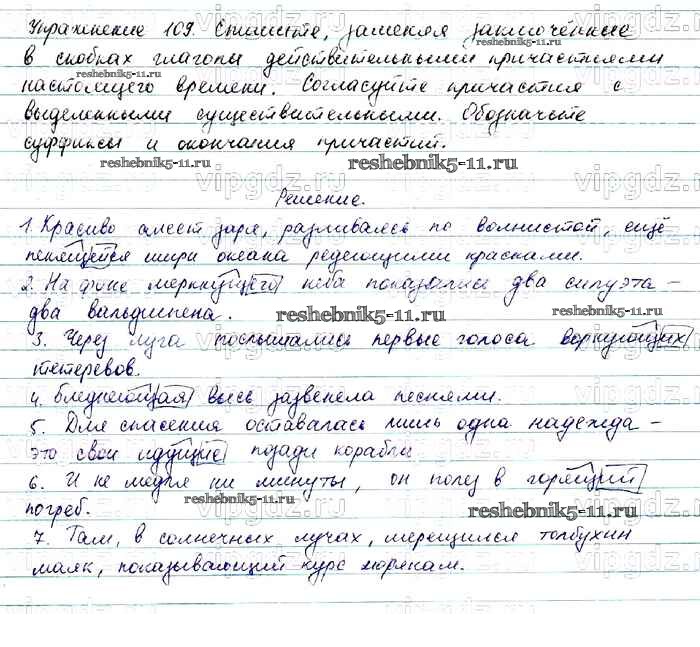 Упражнение 109. Спишите, заменяя заключённые
в скобках глаголы действительными причастиями
настоящего времени. Согласуйте причастия с
выделенными существительными. Обозначьте
суффиксы и окончания причастий.
Решение.
1. Красиво алеет заря, разливаясь по волнистой, ещё
пенящейся шири океана редеющими красками.
2. На фоне меркнущего неба показались два силуэта –
два вальдшнепа.
3. Через луга послышались первые голоса воркующих
тетеревов.
4. Бледнеющая высь зазвенела песнями.
5. Для спасения оставалась лишь одна надежда –
это свои идущие позади корабли
6. И не медля ни минуты, он полез в горящий
погреб.
7. Там, в солнечных лучах, мерещился толбухин
маяк, показывающий курс морякам.
reshebnik5-11.ru
reshebnik5-11.ru
reshebnik5-11.ru
reshebnik5-11.ru
reshebnik5-11.ru
reshebnik5-11.ru
vipgdz.ru